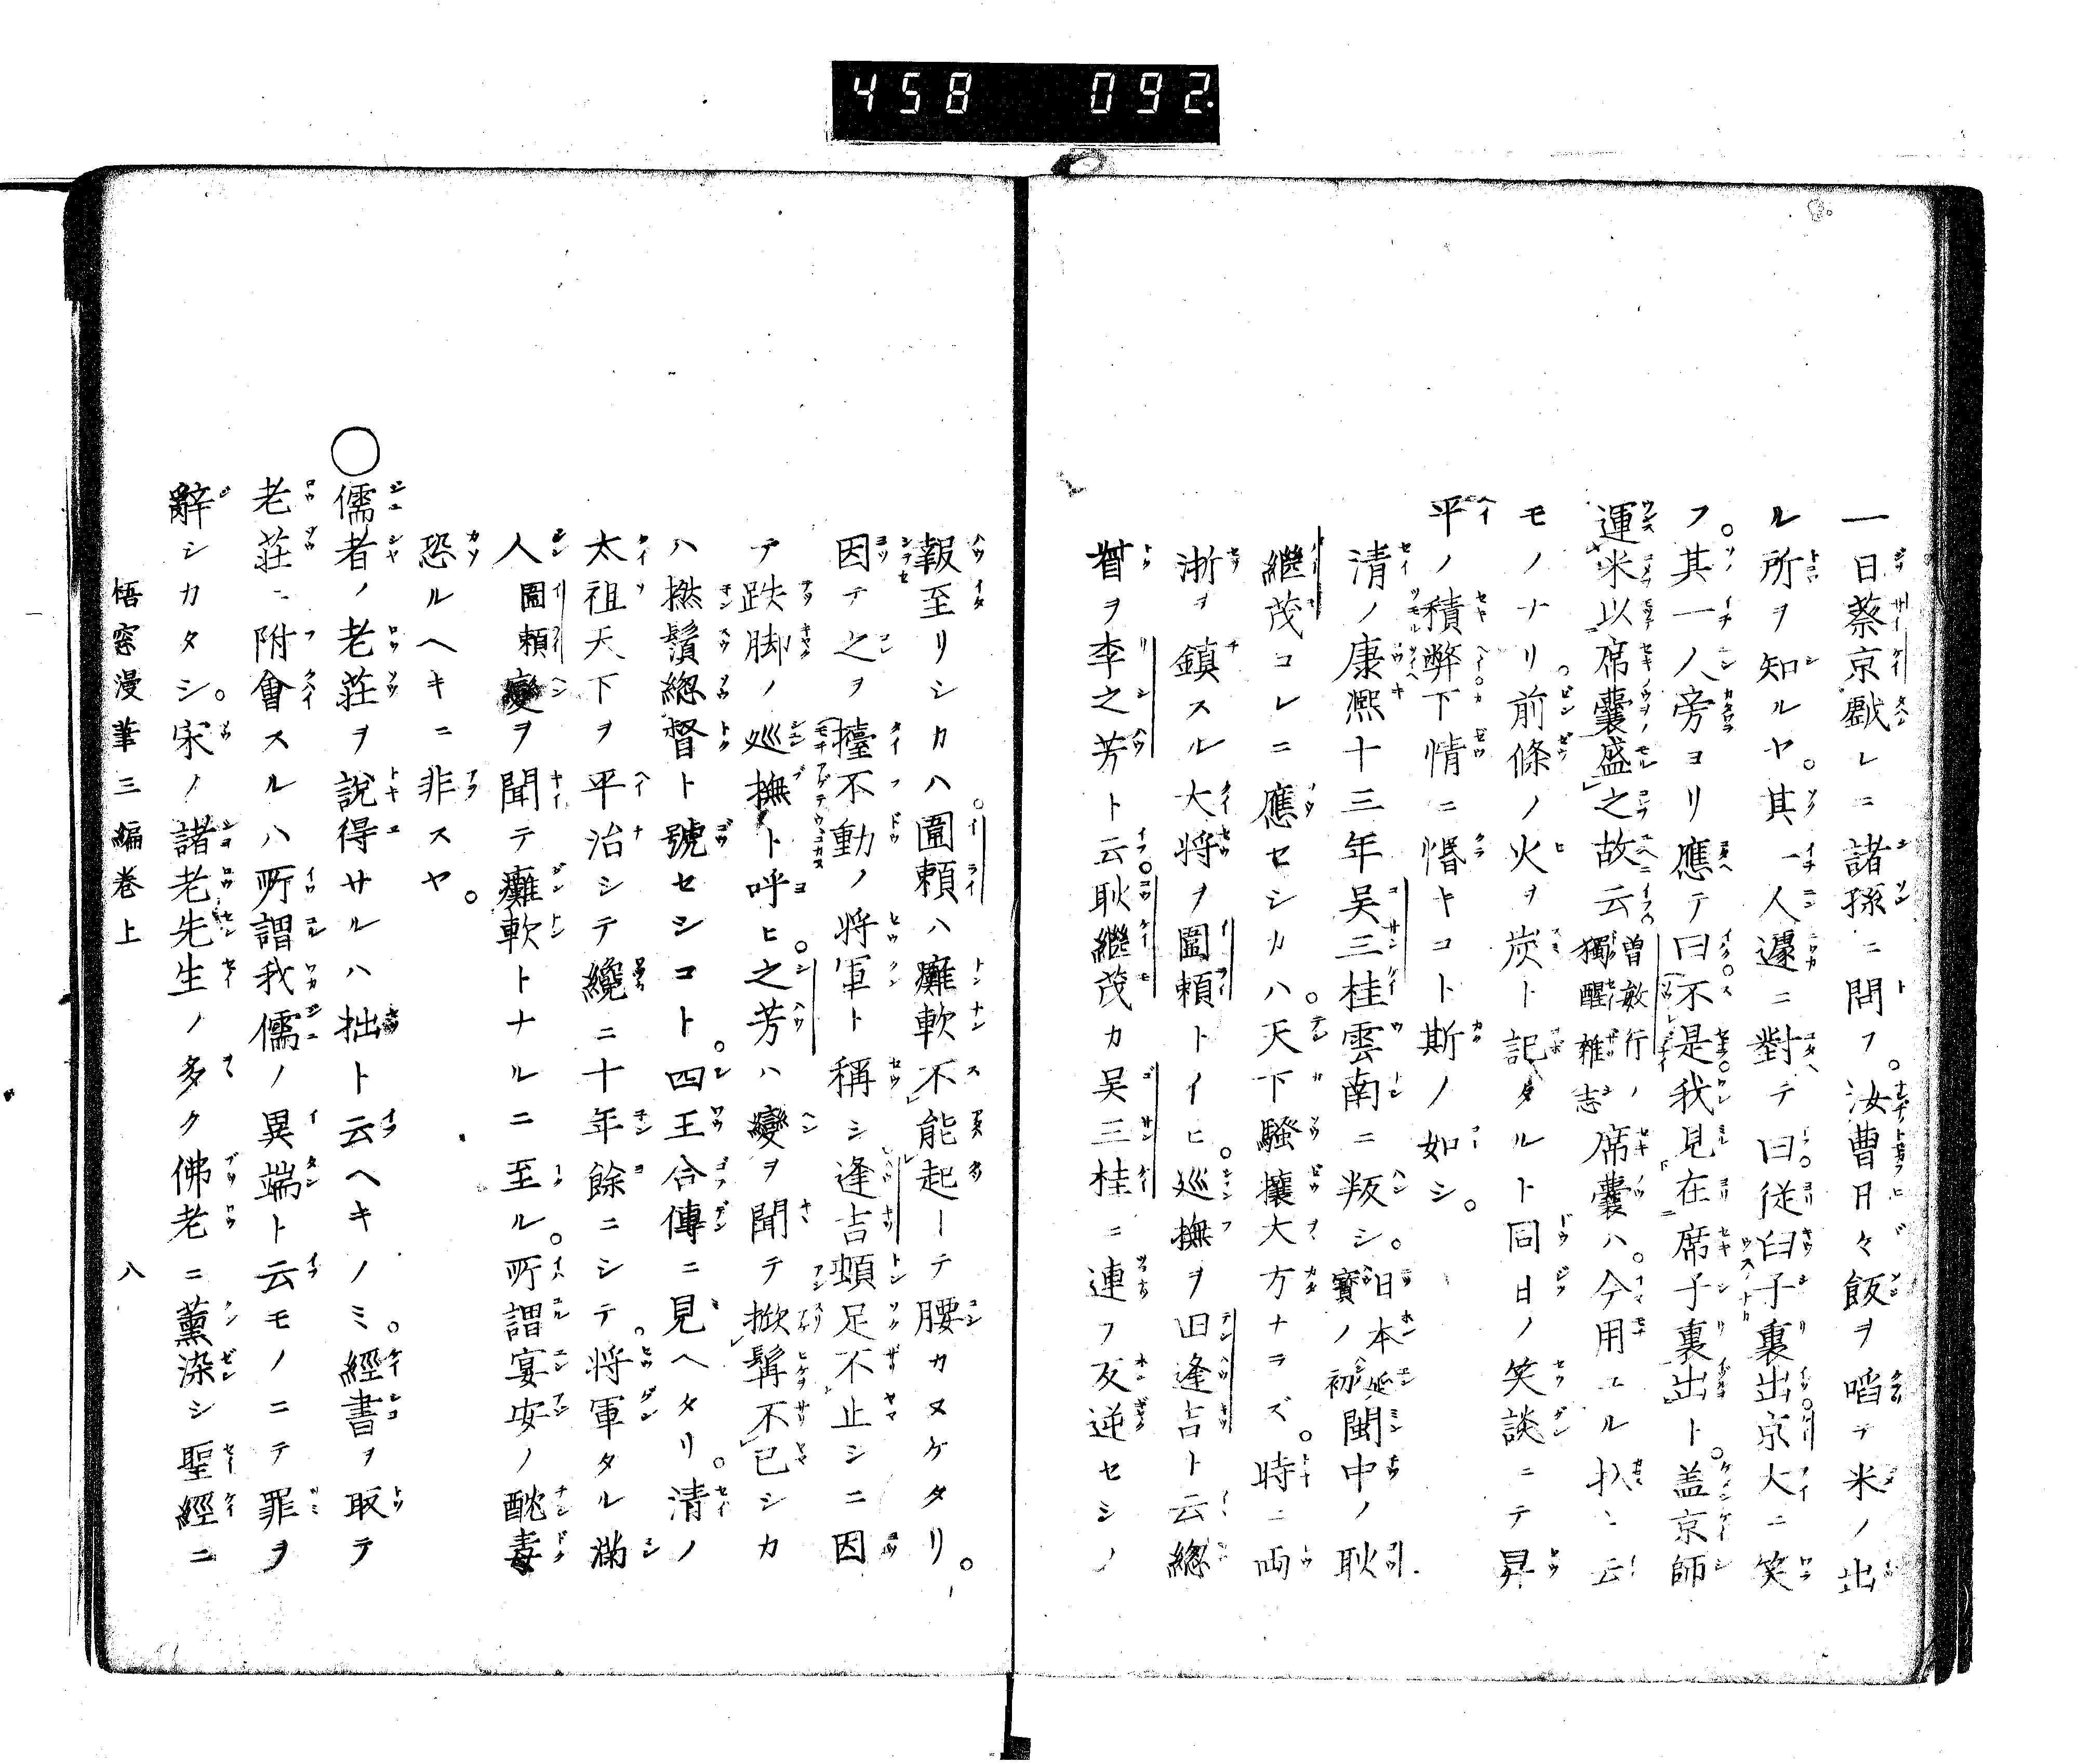 458 092
一日蔡京戲レニ諸孫ニ問フ。汝曹日々飯ヲ啗テ米ノ出
ル所ヲ知ルヤ。其一人遽ニ對テ曰従臼子裏出京大ニ笑
フ。其一人旁ヨリ應テ曰不是我見在席子裏出ト。盖京師
運米以席囊盛之故云曽敏行ノ獨醒雜志席囊ハ。今用ユル叺ミ云
モノナリ。前條ノ火ヲ炭ト記タルト同日ノ笑談ニテ昇
平ノ積弊下情ニ㥧キコト斯ノ如シ。
清ノ康熙十三年吴三桂雲南ニ叛シ。日本延寳ノ初閩中ノ耿
繼茂コレニ應セシカハ。天下騷攘大方ナラズ。時ニ両
浙ヲ鎮スル大将ヲ圖頼トイヒ。巡撫ヲ田逢吉ト云総
督ヲ李之芳ト云耿繼茂カ吴三桂ニ連フ反逆セシノ
報至リシカハ。圖頼ハ癱軟不能起ーテ腰カヌケタリ。
因テ之ヲ擡不動ノ将軍ト稱シ逢吉頓足不止シニ因
テ跌脚ノ巡撫ト呼ヒ。之芳ハ變ヲ聞テ掀髯不已シカ
ハ撚鬚総督ト號セシコト。四王合傳ニ見ヘタリ。清ノ
太祖天下ヲ平治シテ纔ニ十年餘ニシテ。将軍タル満
人圖頼變ヲ聞テ癱軟トナルニ至ル。所謂宴安ノ酖毒
恐ルヘキニ非スヤ。
○儒者ノ老荘ヲ說得サルハ拙ト云ヘキノミ。經書ヲ取テ
老荘ニ附會スルハ所謂我儒ノ異端ト云モノニテ罪ヲ
辭シカタシ。宋ノ諸老先生ノ多ク佛老ニ薫染シ聖經ニ
梧窓漫筆三編巻上 八